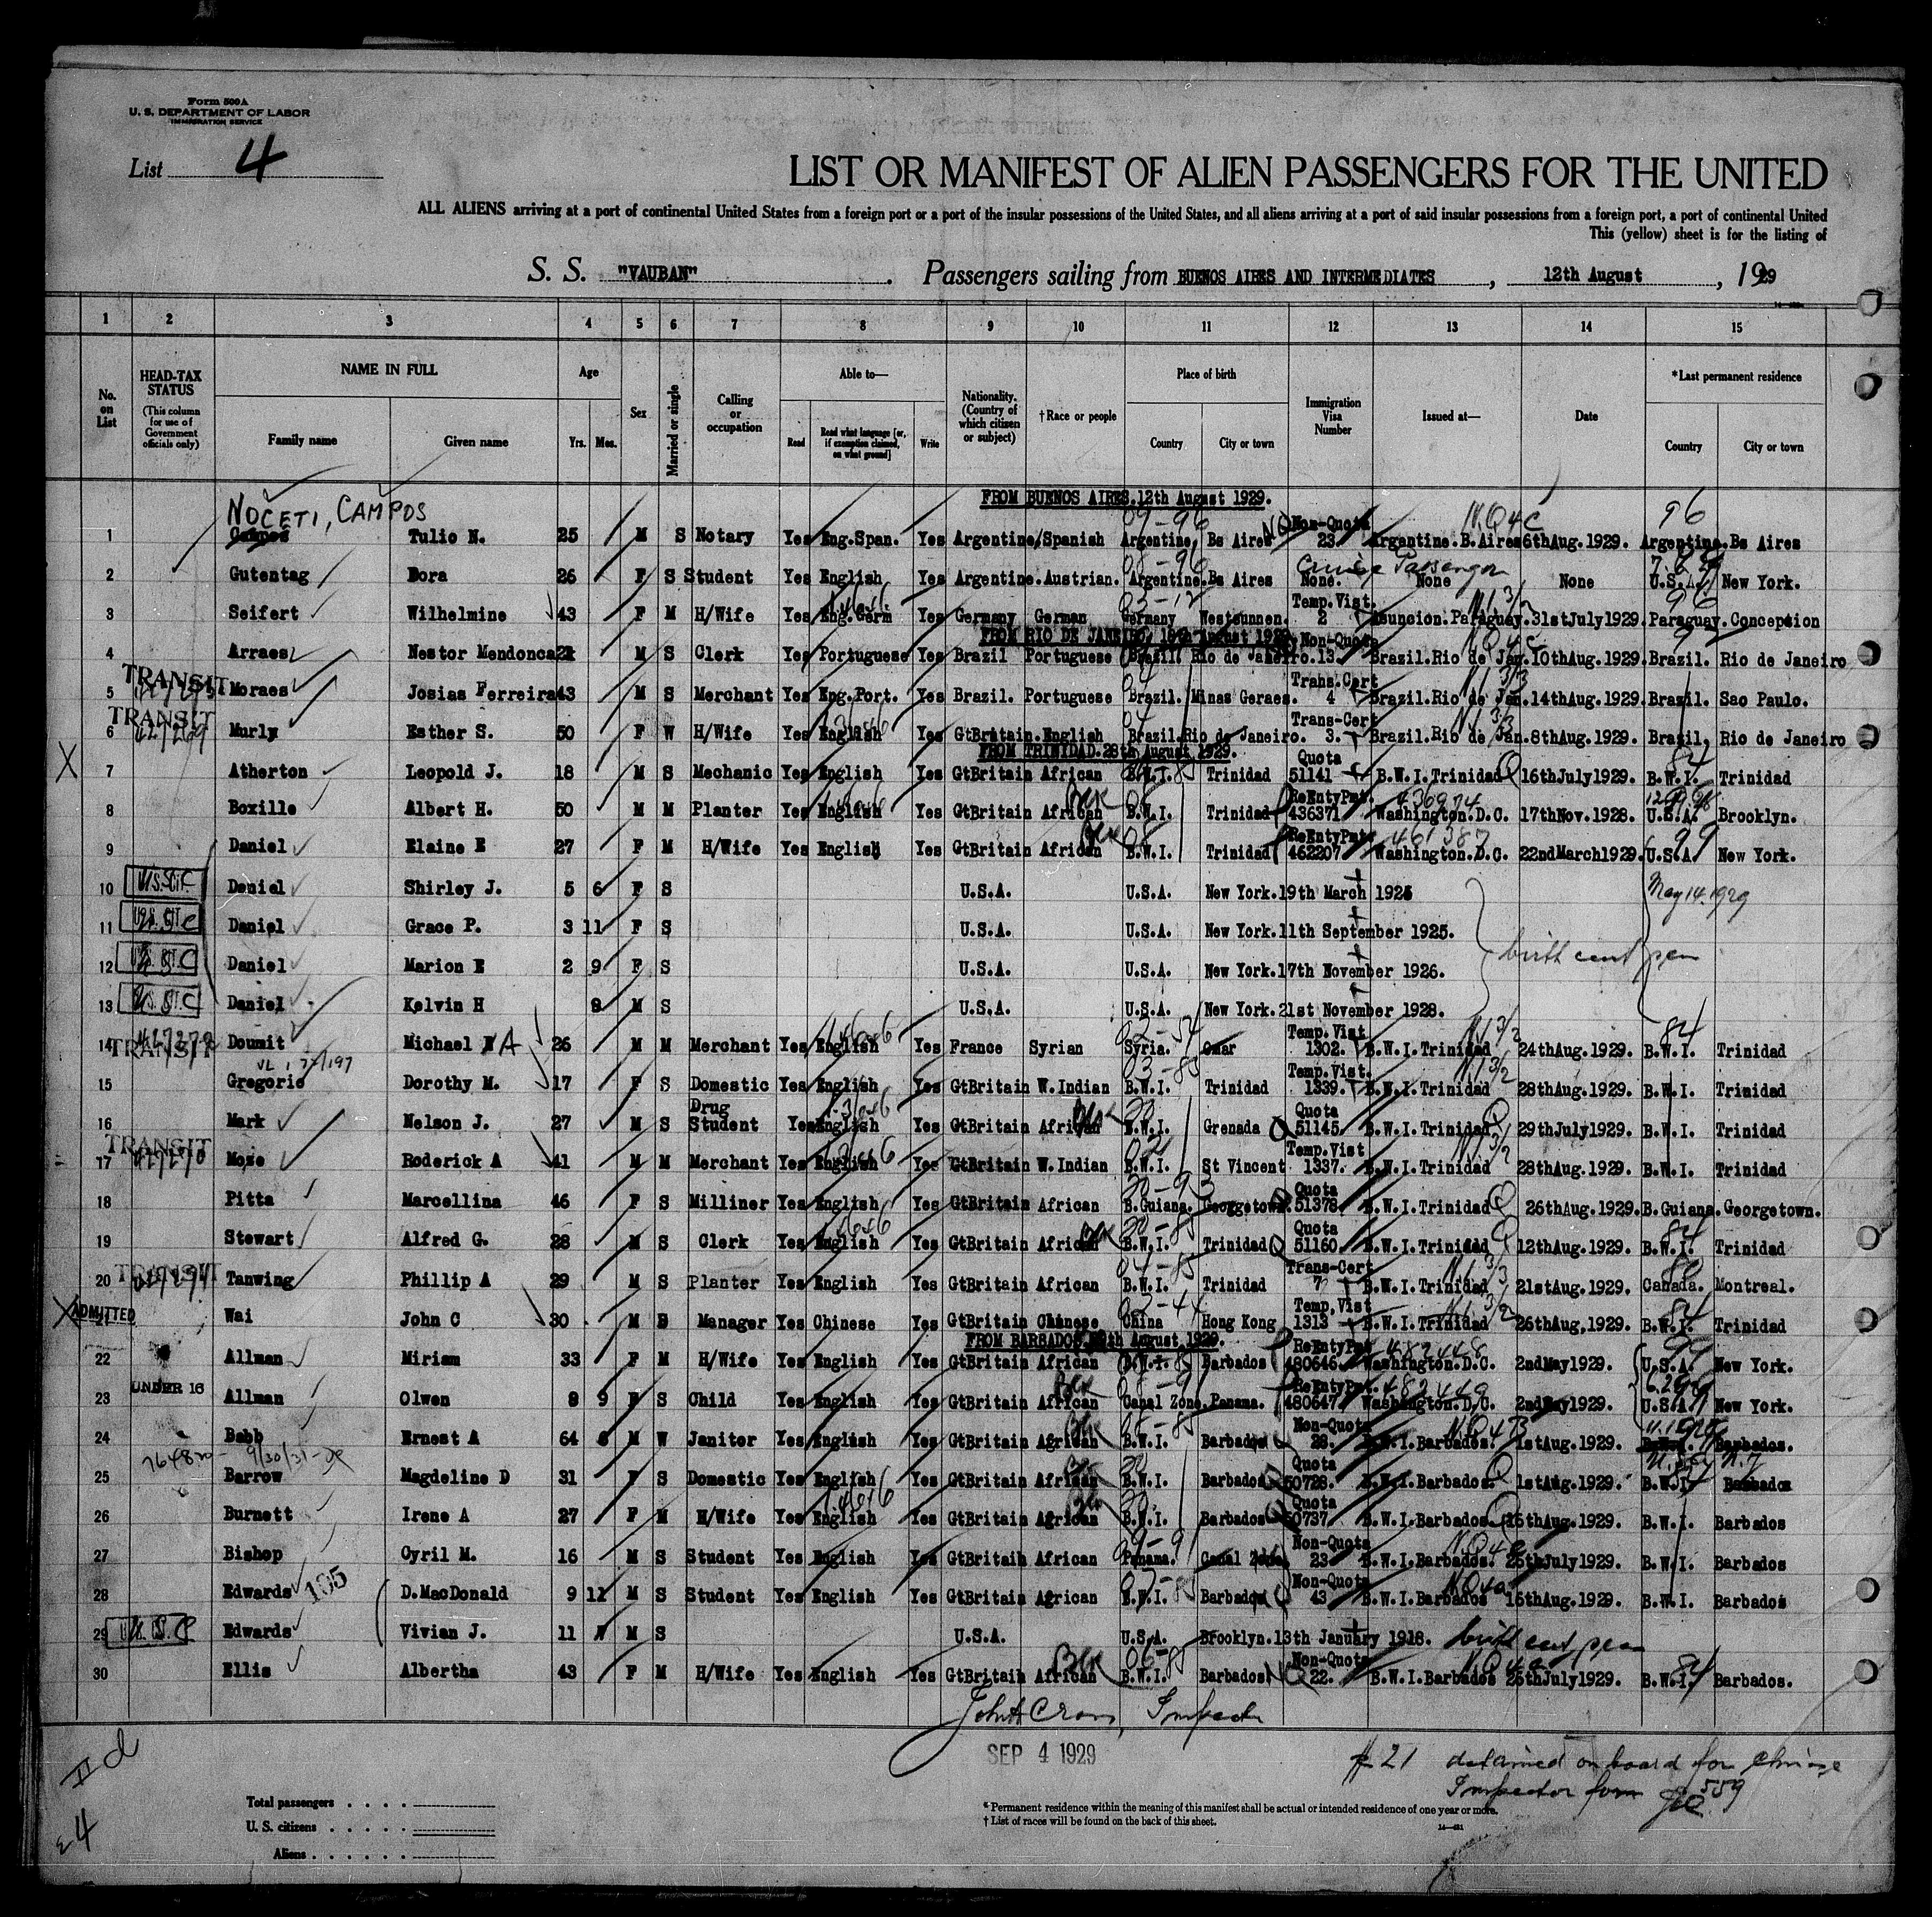 Form 500A
U. S. DEPARTMENT OF LABOR
IMMIGRATION SERVICE
List 4
LIST OR MANIFEST OF ALIEN PASSENGERS FOR THE UNITED
ALL ALIENS arriving at a port of continental United States from a foreign port or a port of the insular possessions of the United States, and all aliens arriving at a port of said insular possessions from a foreign port, a port of continental United
This (yellow) sheet is for the listing of
S. S. "VAUBAN" . Passengers sailing from BUENOS AIRES AND INTERMEDIATES , 12th August , 1929
1 2 3 4 5 6 7 8 9 10 11 12 13 14 15
No. on List
HEAD-TAX STATUS (This column for use of Government officials only)
NAME IN FULL
Family name Given name
Age
Yrs. Mos.
Sex
Married or single
Calling or occupation
Able to—
Read Read what language [or, if exemption claimed, on what ground] Write
Nationality. (Country of which citizen or subject)
†Race or people
Place of birth
Country City or town
Immigration Visa Number
Issued at—
Date
*Last permanent residence
Country City or town
FROM BUENOS AIRES.12th August 1929.
NOCETI, CAMPOS 09-96 Non-Quota N.Q4C 96
1 Campos Tulio N. 25 M S Notary Yes Eng.Span. Yes Argentine Spanish Argentine. Bs Aires 23. Argentine.B.Aires 6thAug.1929. Argentine.Bs Aires
2 Gutentag Dora 26 F S Student Yes English Yes Argentine.Austrian. Argentine.Bs Aires None. None None U.S.A. New York.
Temp.Vist.
3 Seifert Wilhelmine 43 F M H/Wife Yes Eng.Germ Yes Germany German Germany Westsunnen. 2 Asuncion.Paraguay.31stJuly1929.Paraguay.Conception
FROM RIO DE JANEIRO, August 1929. Non-Quota
4 Arraes Nestor Mendonca M S Clerk Yes Portuguese Yes Brazil Portuguese Brazil. Rio de Janeiro.13. Brazil.Rio de Jan.10thAug.1929.Brazil. Rio de Janeiro
TRANSIT Trans.Cert
5 Moraes Josias Ferreira 43 M S Merchant Yes Eng.Port. Yes Brazil. Portuguese Brazil. Minas Geraes. 4 Brazil.Rio de Jan.14thAug.1929.Brazil. Sao Paulo.
TRANSIT Trans-Cert
6 Murly Esther S. 50 F W H/Wife Yes English Yes GtBritain.English Brazil.Rio de Janeiro. 3. Brazil.Rio de Jan.8thAug.1929. Brazil. Rio de Janeiro
FROM TRINIDAD.28th August 1929.
Quota 84
7 Atherton Leopold J. 18 M S Mechanic Yes English Yes GtBritain African B.W.I. Trinidad 51141 B.W.I.Trinidad 16thJuly1929. B.W.I. Trinidad
ReEntyPmt. 436974
8 Boxille Albert H. 50 M M Planter Yes English Yes GtBritain African B.W.I. Trinidad 436371 Washington.D.C. 17thNov.1928. U.S.A. Brooklyn.
ReEntyPmt 461387 99
9 Daniel Elaine E 27 F M H/Wife Yes English Yes GtBritain African B.W.I. Trinidad 462207 Washington.D.C. 22ndMarch1929.U.S.A. New York.
10 U.S.CIT Daniel Shirley J. 5 6 F S U.S.A. U.S.A. New York.19th March 1925 May 14.1929
11 Daniel Grace P. 3 11 F S U.S.A. U.S.A. New York.11th September 1925.
12 Daniel Marion E 2 9 F S U.S.A. U.S.A. New York.17th November 1926. birth cert
13 Daniel Kelvin H M S U.S.A. U.S.A. New York.21st November 1928.
Temp.Vist 84
14 TRANSIT Doumit Michael A 26 M M Merchant Yes English Yes France Syrian Syria. Omar 1302. B.W.I.Trinidad 24thAug.1929. B.W.I. Trinidad
Temp.Vist.
15 Gregorie Dorothy M. 17 F S Domestic Yes English Yes GtBritain W.Indian B.W.I. Trinidad 1339. B.W.I.Trinidad 28thAug.1929. B.W.I. Trinidad
Drug Quota
16 Mark Nelson J. 27 M S Student Yes English Yes GtBritain African B.W.I. Grenada 51145 B.W.I.Trinidad 29thJuly1929. B.W.I. Trinidad
TRANSIT Temp.Vist
17 Moxe Roderick A 41 M M Merchant Yes English Yes GtBritain W.Indian B.W.I. St Vincent 1337. B.W.I.Trinidad 28thAug.1929. B.W.I. Trinidad
Quota
18 Pitta Marcellina 46 F S Milliner Yes English Yes GtBritain African B.Guiana. Georgetown. 51378 B.W.I.Trinidad 26thAug.1929.B.Guiana.Georgetown.
Quota 84
19 Stewart Alfred G. 28 M S Clerk Yes English Yes GtBritain African B.W.I. Trinidad 51160 B.W.I.Trinidad 12thAug.1929. B.W.I. Trinidad
TRANSIT Trans-Cert
20 Tanwing Phillip A 29 M S Planter Yes English Yes GtBritain African B.W.I. Trinidad 7 B.W.I.Trinidad 21stAug.1929. Canada. Montreal.
ADMITTED Temp.Vist 84
21 Wai John C 30 M Manager Yes Chinese Yes GtBritain Chinese China Hong Kong 1313 B.W.I.Trinidad 26thAug.1929. B.W.I. Trinidad
FROM BARBADOS. August 1929.
ReEntyPmt 482448
22 Allman Miriam 33 F M H/Wife Yes English Yes GtBritain African B.W.I. Barbados 480646 Washington.D.C. 2ndMay1929. U.S.A. New York.
UNDER 16 ReEntyPmt.
23 Allman Olwen 8 9 F S Child Yes English Yes GtBritain African Canal Zone.Panama. 480647 Washington.D.C. 2ndMay1929. U.S.A. New York.
Non-Quota
24 Babb Ernest A 64 M W Janitor Yes English Yes GtBritain African B.W.I. Barbados 28. B.W.I.Barbados. 1stAug.1929. Barbados.
9/30/31 Quota
25 Barrow Magdeline D 31 F S Domestic Yes English Yes GtBritain African B.W.I. Barbados 50728. B.W.I.Barbados 1stAug.1929. B.W.I. Barbados
Quota
26 Burnett Irene A 27 F M H/Wife Yes English Yes GtBritain African B.W.I. Barbados 50737. B.W.I.Barbados 15thAug.1929. B.W.I. Barbados
Non-Quota
27 Bishop Cyril M. 16 M S Student Yes English Yes GtBritain African Panama. Canal Zone 23 B.W.I.Barbados. 25thJuly1929. B.W.I. Barbados
Non-Quota
28 Edwards 105 D.MacDonald 9 11 M S Student Yes English Yes GtBritain African B.W.I. Barbados 43 B.W.I.Barbados 16thAug.1929. B.W.I. Barbados
29 Edwards Vivian J. 11 M S U.S.A. U.S.A. Brooklyn.13th January 1918. birth cert
Non-Quota 84
30 Ellis Albertha 43 F M H/Wife Yes English Yes GtBritain African B.W.I. Barbados 22. B.W.I.Barbados 25thJuly1929. B.W.I. Barbados.
SEP 4 1929
# 21 detained on board for Chinese
Inspector form 559
Total passengers
U. S. citizens
Aliens
* Permanent residence within the meaning of this manifest shall be actual or intended residence of one year or more.
† List of races will be found on the back of this sheet.